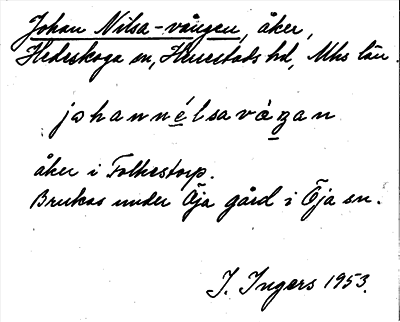 Johan Nilsa-vången, åker,
Hedeskoga sn, Herrestads hd, Mhs län.
johannélsavàgan
åker i Folkestorp.
Brukas under Öja gård i Öja sn.
I. Ingers 1953.